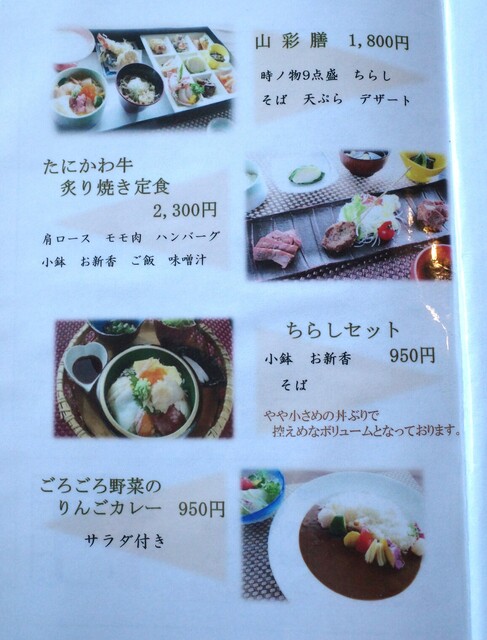 山彩膳 1,800円
時ノ物9点盛 ちらし
そば 天ぷら デザート
たにかわ牛
炙り焼き定食
2,300円
肩ロース モモ肉 ハンバーグ
小鉢 お新香 ご飯 味噌汁
ちらしセット
小鉢 お新香 950円
そば
やや小さめの丼ぶりで
控えめなボリュームとなっております。
ごろごろ野菜の
りんごカレー 950円
サラダ付き